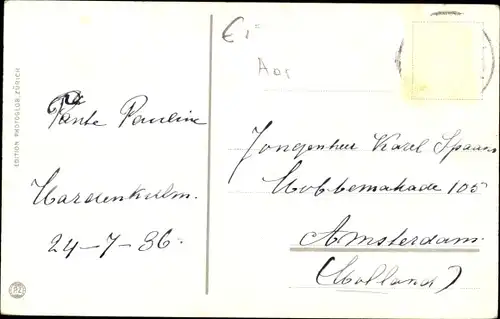 EDITION PHOTOGLOB, ZÜRICH
Tante Pauline
Harderkulm.
24-7-36.
€1=
Aar
Jongenheer Karel Spaan
Hobbemakade 105
Amsterdam
(Holland)